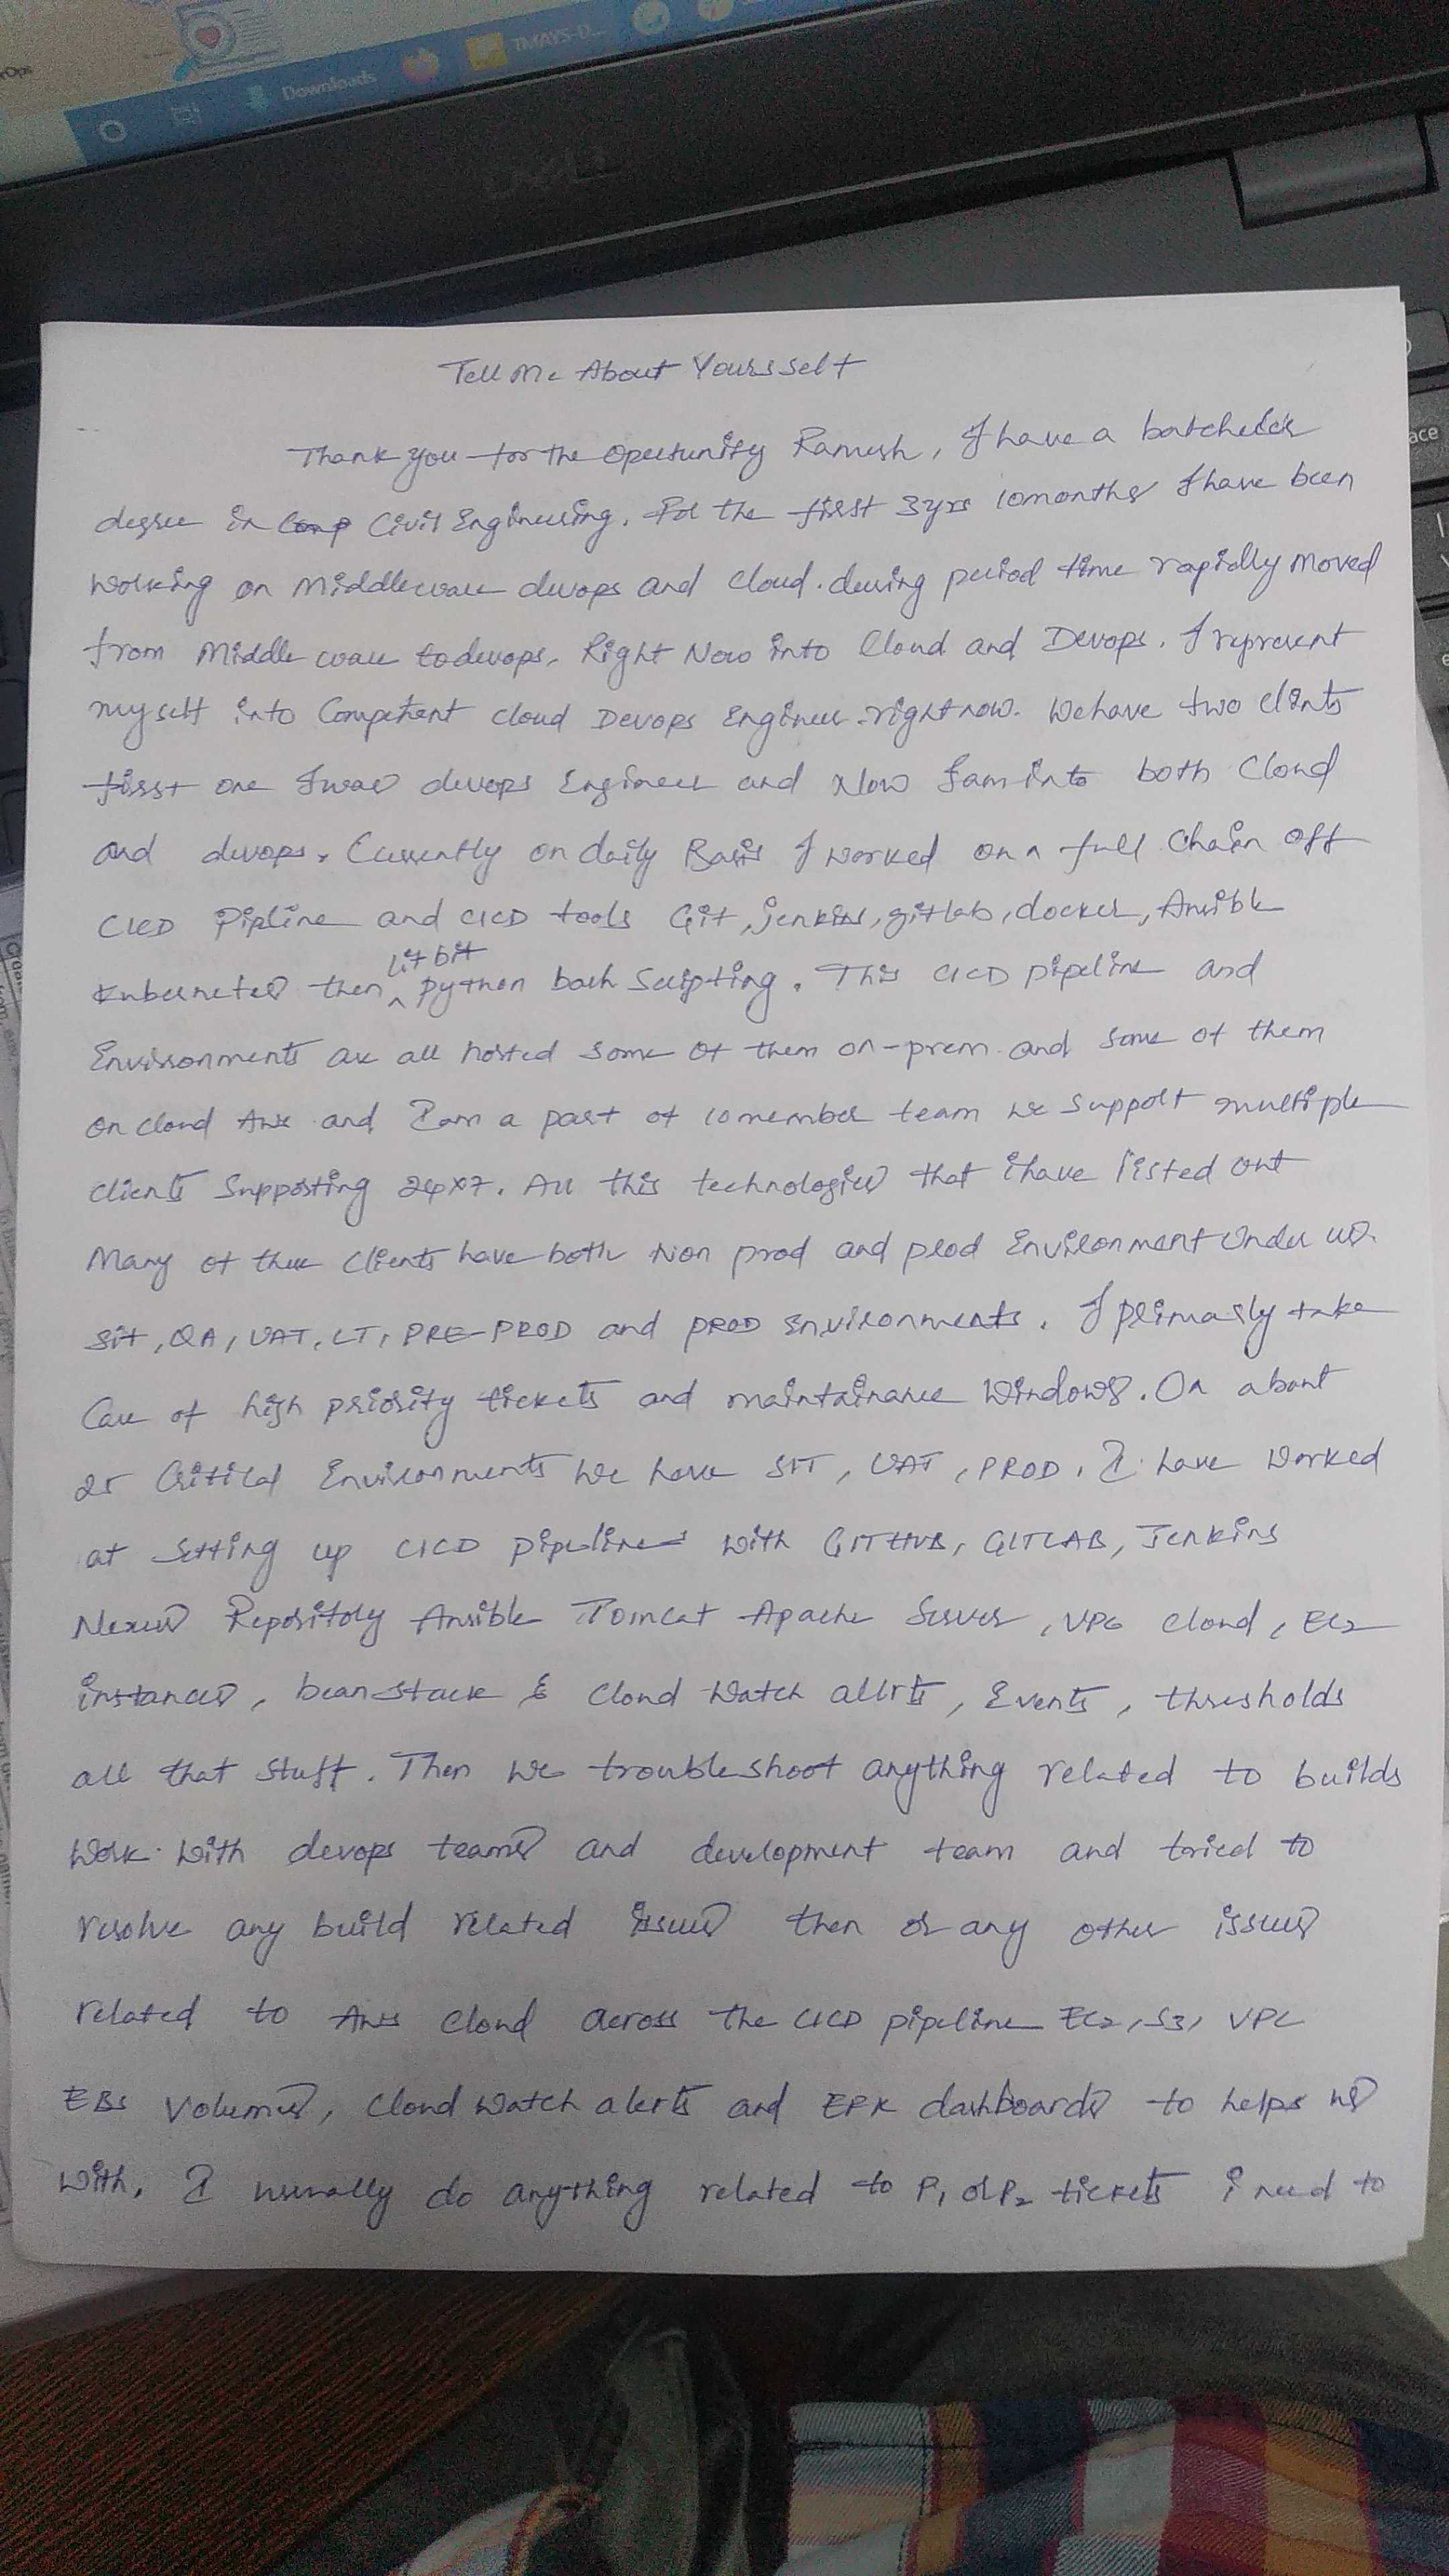 Downloads
TMAYS-D...
DELL
Tell Me About Yoursself
Thank you for the Opertunity Ramesh, I have a batchelors
degree in Comp Civil Engineering. For the first 3yrs 10months I have been
working on Middleware devops and cloud. during period time rapidly moved
from Middle ware to devops. Right Now into Cloud and Devops. I represent
my self into Competent cloud Devops Engineer right now. We have two clints
first one I was devops Engineer and Now I am into both Cloud
and devops. Currently on daily Basis I worked on a full chain off
CICD Pipline and CICD tools Git, jenkins, gitlab, docker, Ansible
Kubernetes then lit bit python bash Scripting. This CICD pipeline and
Environments are all hosted some of them on-prem and some of them
on cloud Aws and I am a part of 10member team we support multiple
clients Supporting 24x7. All this technologies that i have listed out
Many of these clients have both Non prod and prod Environment Under us.
SIT, QA, UAT, LT, PRE-PROD and PROD Environments. I primarly take
Care of high priority tickets and maintainance Windows. On about
25 Critical Environments we have SIT, UAT, PROD. I have worked
at Setting up CICD pipelines with GITHUB, GITLAB, Jenkins
Nexus Repository Ansible Tomcat Apache Server, VPC cloud, EC2
instances, beanstack & Cloud Watch allrts, Events, thresholds
all that stuff. Then we troubleshoot anything related to builds
Work with devops teams and development team and tried to
resolve any build related issues then or any other issues
related to Aws Cloud across the CICD pipeline EC2, S3, VPC
EBS Volumes, Cloud Watch alerts and EPK dashboards to helps us
with. I usually do anything related to P1 or P2 tickets i need to